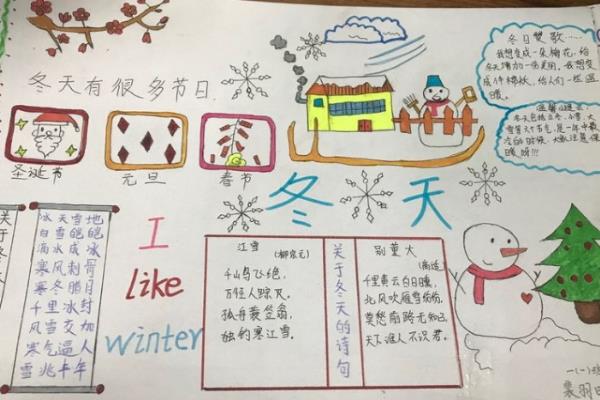 冬天有很多节日
圣诞节
元旦
春节
冬日赞歌……
我想变成一朵梅花,给
冬天增加一份美丽,我想变
成一件棉袄,给人们一些温
暖。
冬天包括立冬、小雪、大
雪等六个节气,是一年中最
冷的时候,大家注意保
暖呀!!!
冬天
关于冬
冰天雪地
白雪皑皑
滴水成冰
寒风刺骨
寒冬腊月
千里冰封
风雪交加
寒气逼人
雪兆丰年
I
like
winter
江雪
(柳宗元)
千山鸟飞绝,
万径人踪灭。
孤舟蓑笠翁,
独钓寒江雪。
关于冬天的诗句
别董大
(高适)
千里黄云白日曛,
北风吹雁雪纷纷,
莫愁前路无知己,
天下谁人不识君。
一(一)班